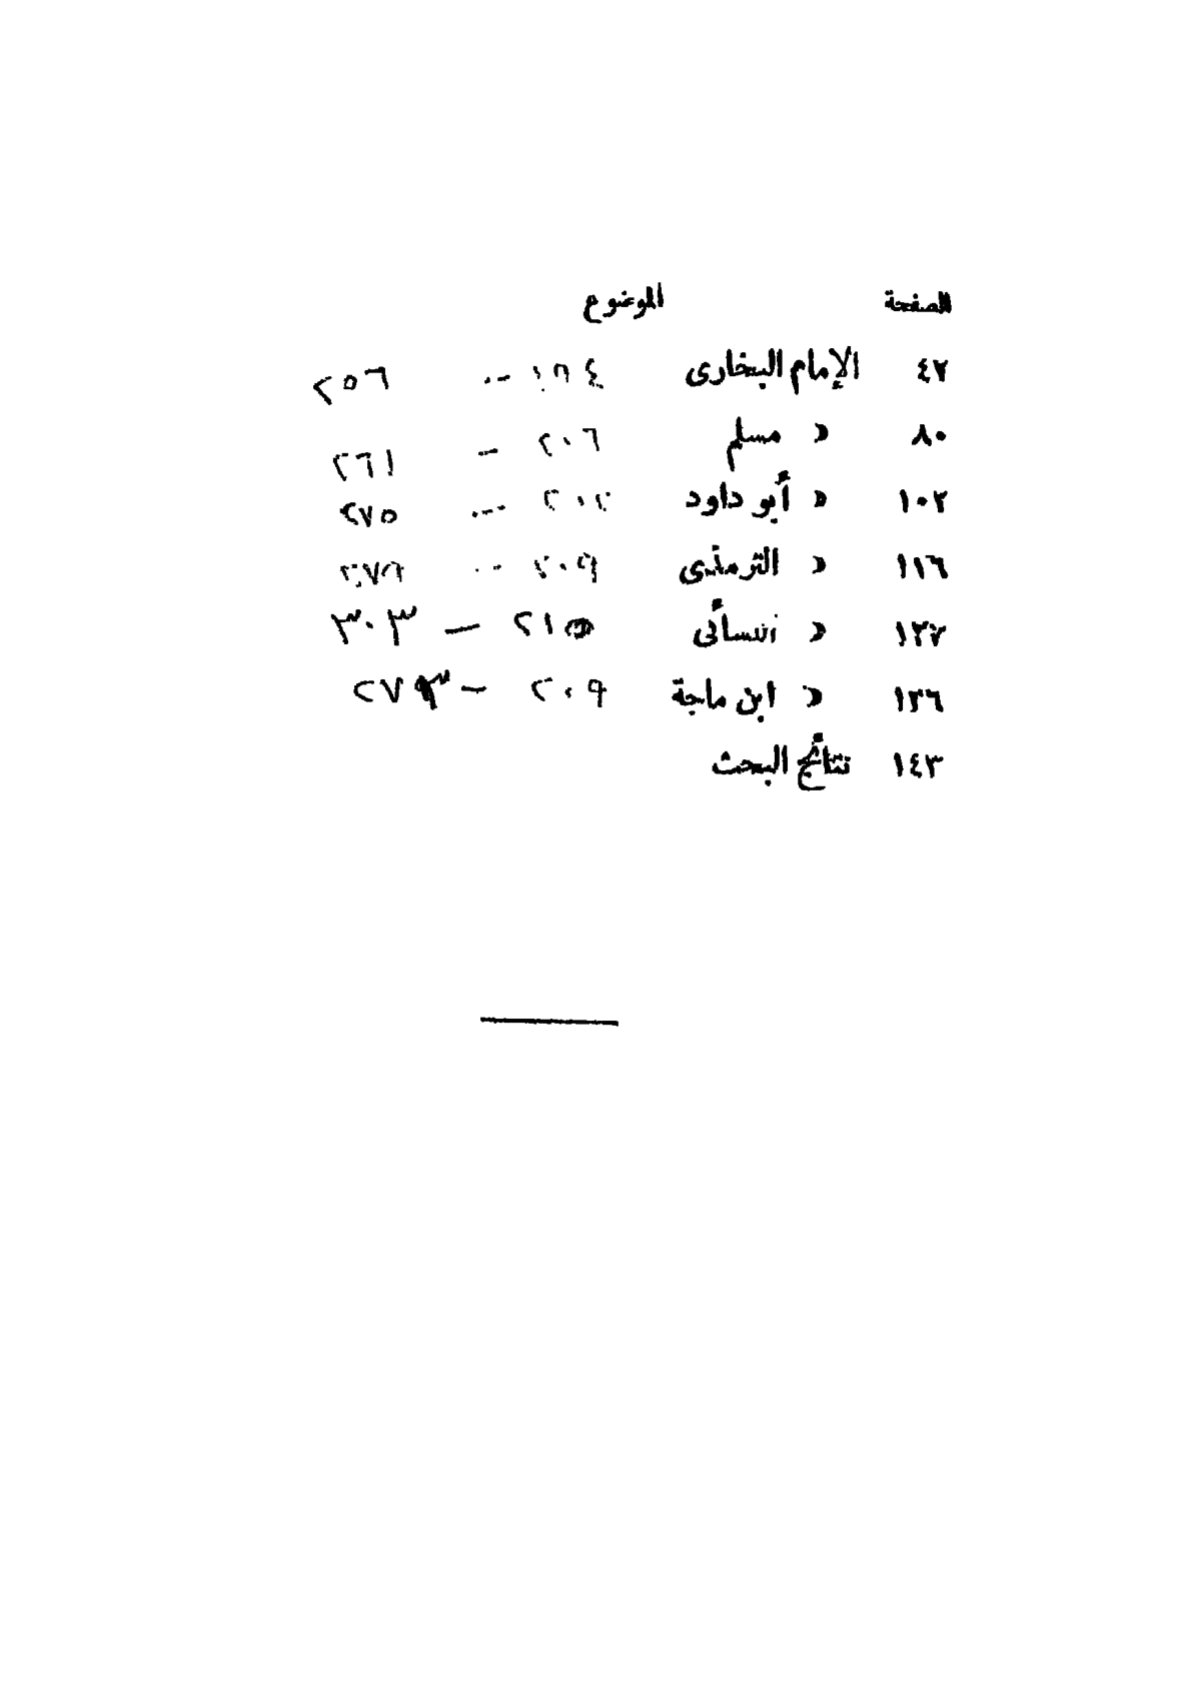 الصفحة الموضوع
٤٧ الإمام البخارى ١٩٤ - ٢٥٦
٨٠ » مسلم ٢٠٦ - ٢٦١
١٠٢ » أبو داود ٢٠٢ - ٢٧٥
١١٦ » الترمذى ٢٠٩ - ٢٧٩
» النسائى ٢١٥ - ٣٠٣
١٣٦ » ابن ماجة ٢٠٩ - ٢٧٣
١٤٣ نتائج البحث